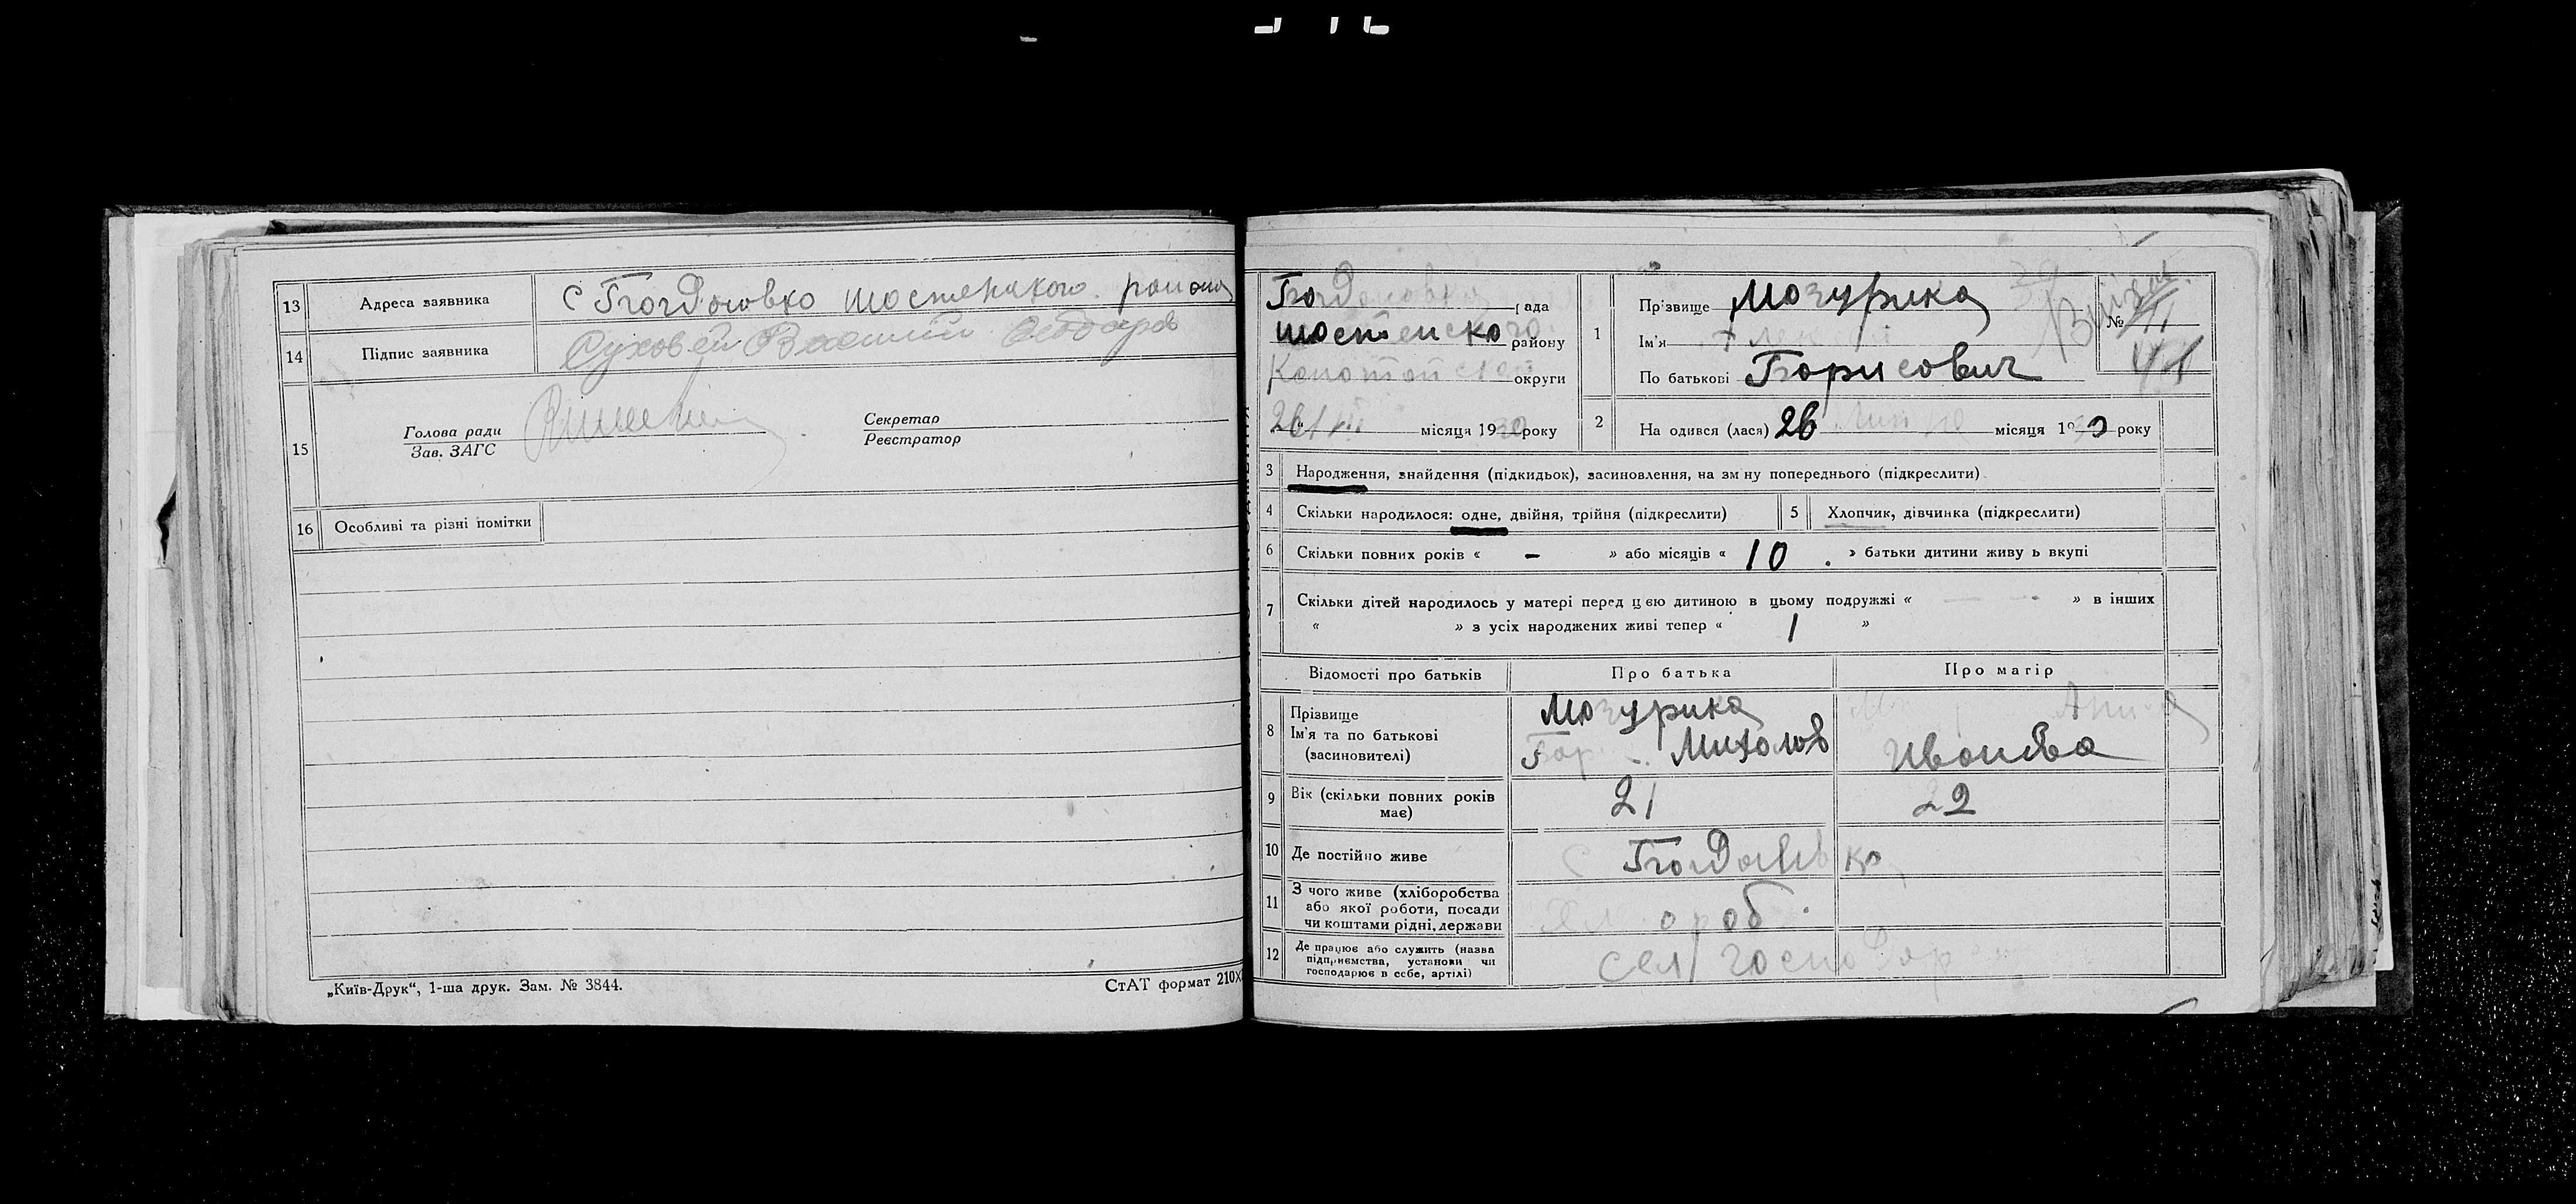 13 Адреса заявника с Богдоновко шостенского района
14 Підпис заявника Суховей Василий
15 Голова ради
Зав. ЗАГС
Секретар
Реєстратор
16 Особливі та різні помітки
„Київ-Друк“, 1-ша друк. Зам. № 3844.
СтАТ формат 210X
Богдоновка рада
шостенского району
Конотопской округи
26/III місяця 1930 року
1 Прізвище Мозурика
Ім'я
По батькові Борисович
№ 41
2 Народився (лася) 26 місяця 1930 року
3 Народження, знайдення (підкидьок), засиновлення, на зміну попереднього (підкреслити)
4 Скільки народилося: одне, двійня, трійня (підкреслити)
5 Хлопчик, дівчинка (підкреслити)
6 Скільки повних років « – » або місяців « 10 . » батьки дитини живуть вкупі
7 Скільки дітей народилось у матері перед цією дитиною в цьому подружжі « — » в інших
« » з усіх народжених живі тепер « 1 »
Відомості про батьків Про батька Про матір
8 Прізвище
Ім'я та по батькові
(засиновителі)
Мозурика
Бор Михолов
Анна
Ивоновна
9 Вік (скільки повних років має) 21 22
10 Де постійно живе с Богдонівка
11 З чого живе (хліборобства
або якої роботи, посади
чи коштами рідні, держави
ороб.
12 Де працює або служить (назва
підприємства, установи чи
господарює в себе, артілі)
сел господар